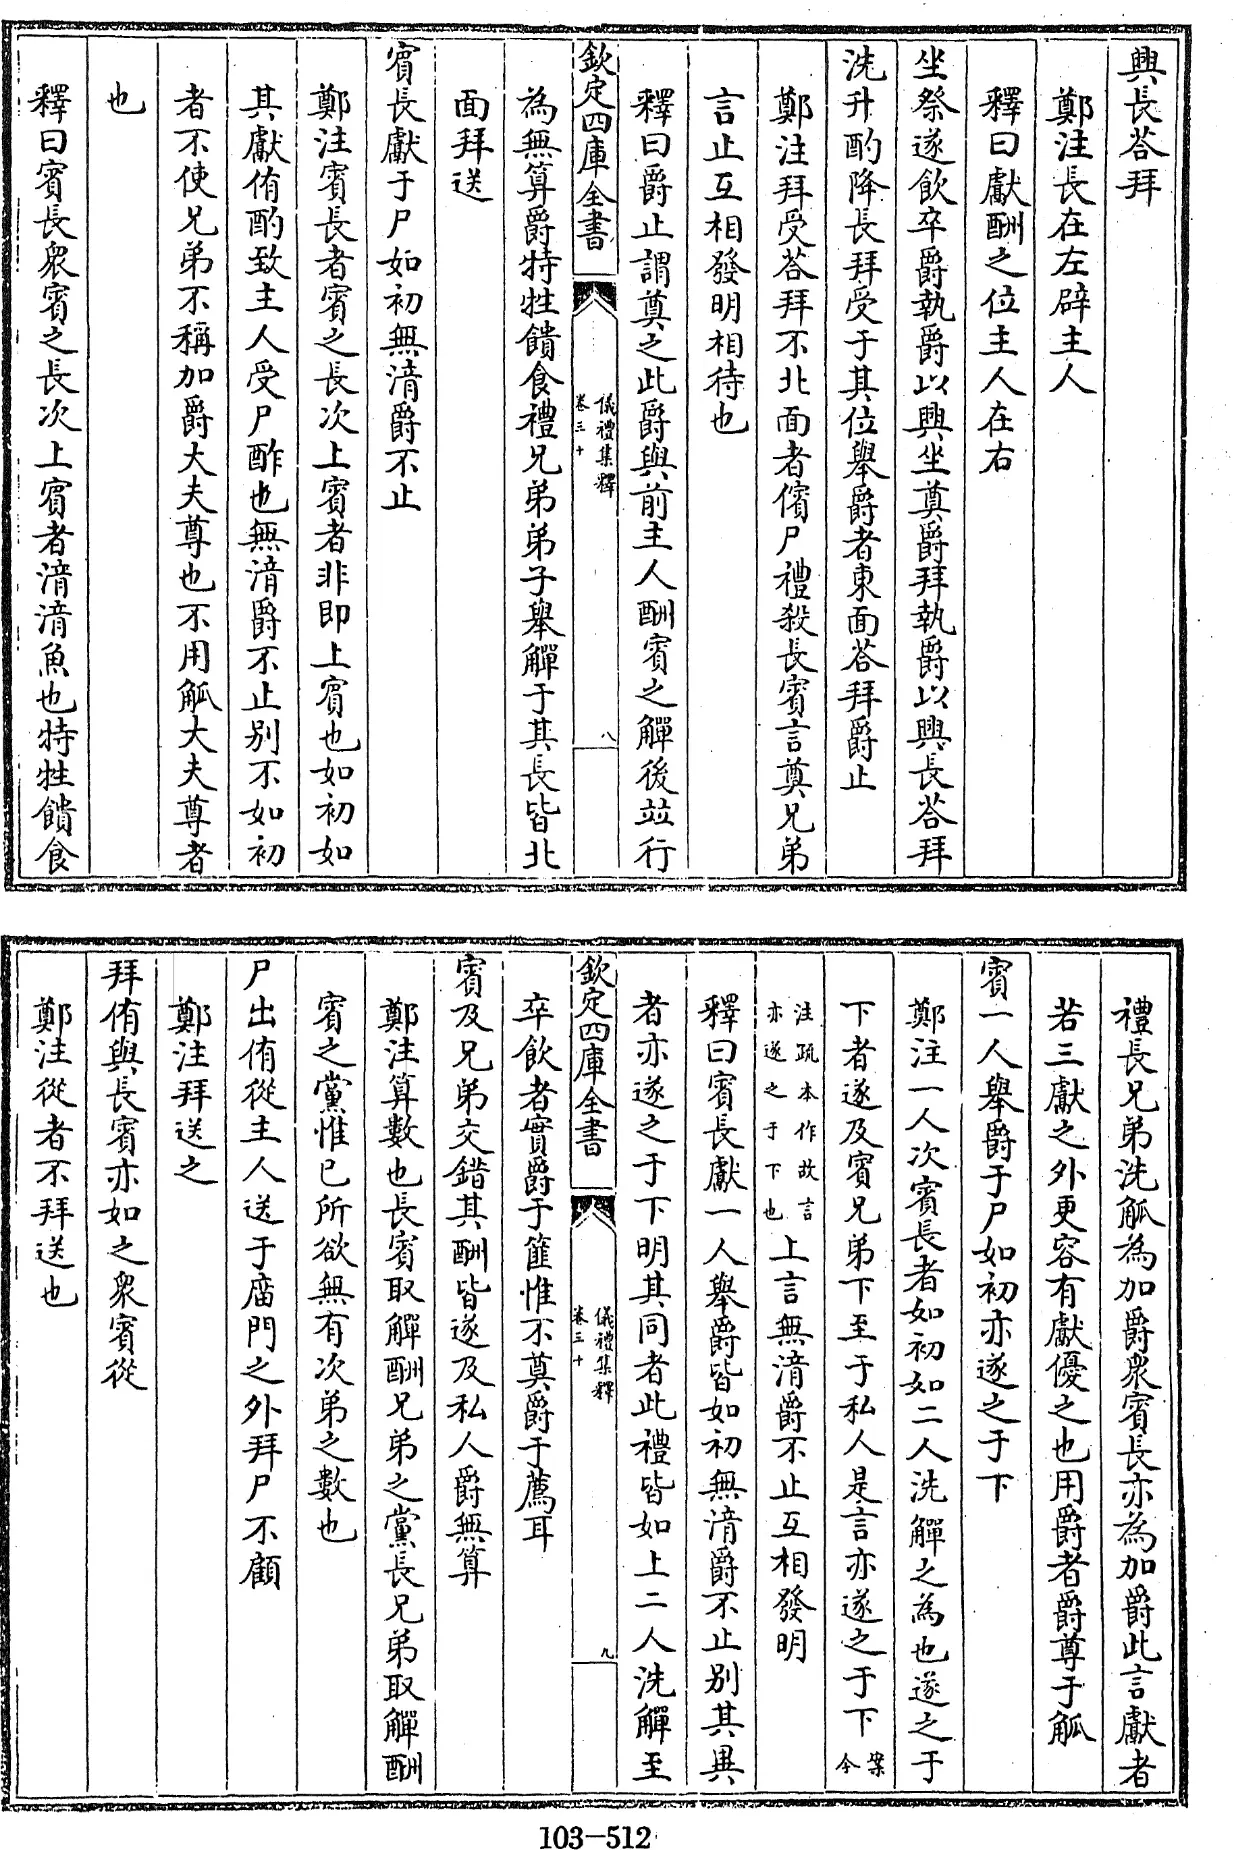 興長荅拜
鄭注長在左辟主人
釋曰獻酬之位主人在右
坐祭遂飲卒爵執爵以興坐奠爵拜執爵以興長荅拜
洗升酌降長拜受于其位舉爵者東面荅拜爵止
鄭注拜受荅拜不北面者儐尸禮殺長賓言奠兄弟
言止互相發明相待也
釋曰爵止謂奠之此爵與前主人酬賓之觶後竝行
欽定四庫全書
儀禮集釋
卷三十
八
為無算爵特牲饋食禮兄弟弟子舉觶于其長皆北
面拜送
賓長獻于尸如初無湆爵不止
鄭注賓長者賓之長次上賓者非即上賓也如初如
其獻侑酌致主人受尸酢也無湆爵不止別不如初
者不使兄弟不稱加爵大夫尊也不用觚大夫尊者
也
釋曰賓長衆賓之長次上賓者湆湆魚也特牲饋食
禮長兄弟洗觚為加爵衆賓長亦為加爵此言獻者
若三獻之外更容有獻優之也用爵者爵尊于觚
賓一人舉爵于尸如初亦遂之于下
鄭注一人次賓長者如初如二人洗觶之為也遂之于
下者遂及賓兄弟下至于私人是言亦遂之于下案今
注疏本作故言亦遂之于下也上言無湆爵不止互相發明
釋曰賓長獻一人舉爵皆如初無湆爵不止別其異
者亦遂之于下明其同者此禮皆如上二人洗觶至
欽定四庫全書
儀禮集釋
卷三十
九
卒飲者實爵于篚惟不奠爵于薦耳
賓及兄弟交錯其酬皆遂及私人爵無算
鄭注算數也長賓取觶酬兄弟之黨長兄弟取觶酬
賓之黨惟已所欲無有次弟之數也
尸出侑從主人送于廟門之外拜尸不顧
鄭注拜送之
拜侑與長賓亦如之衆賓從
鄭注從者不拜送也
103-512